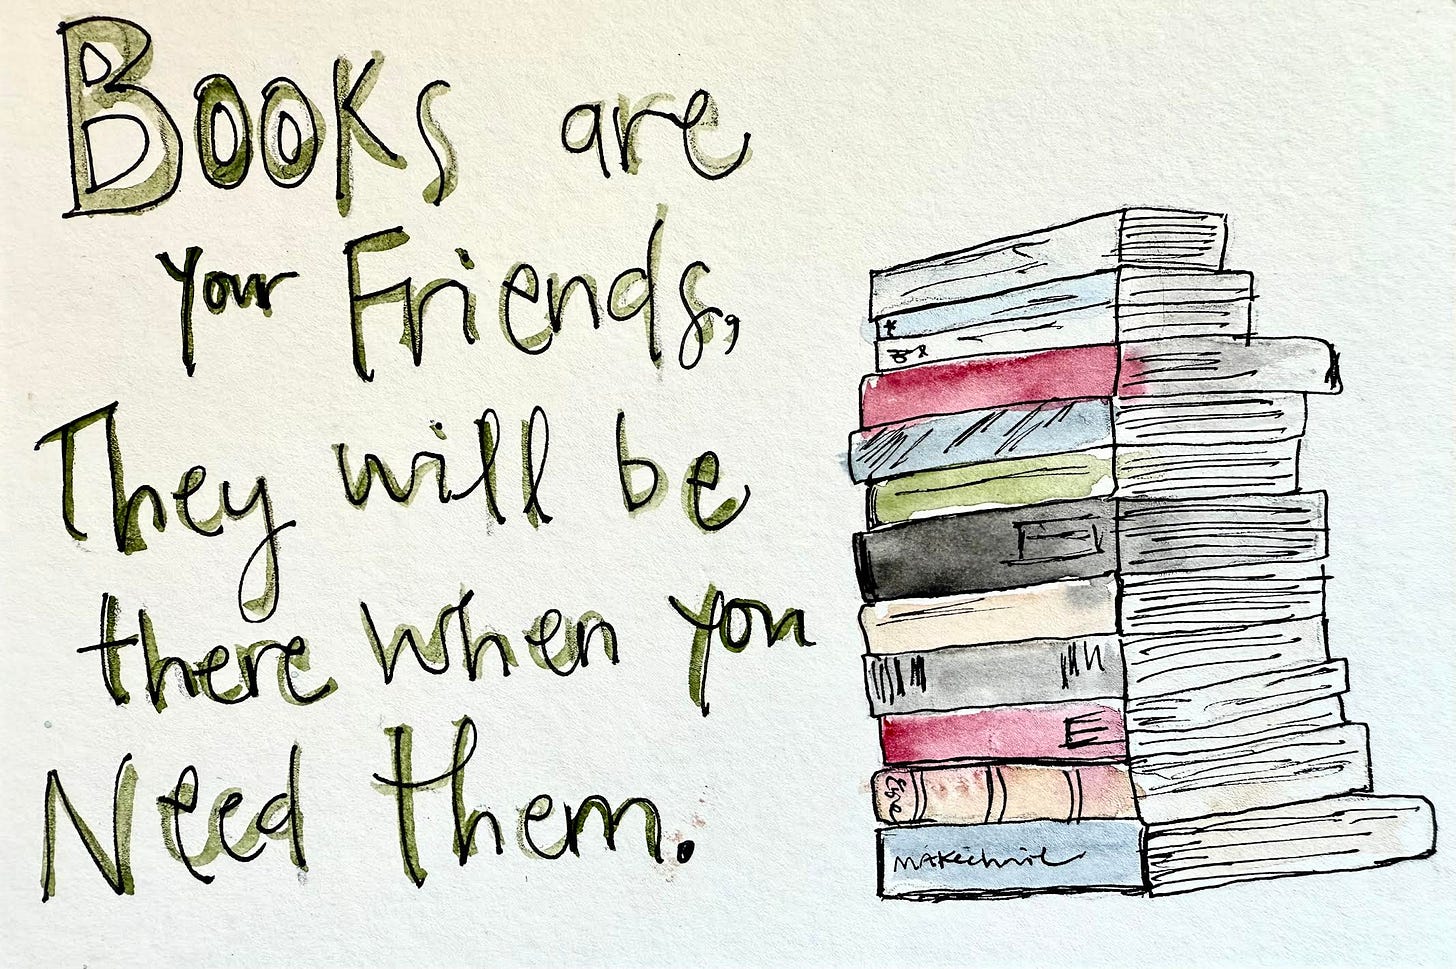 Books are
your Friends,
They will be
there when you
Need them.